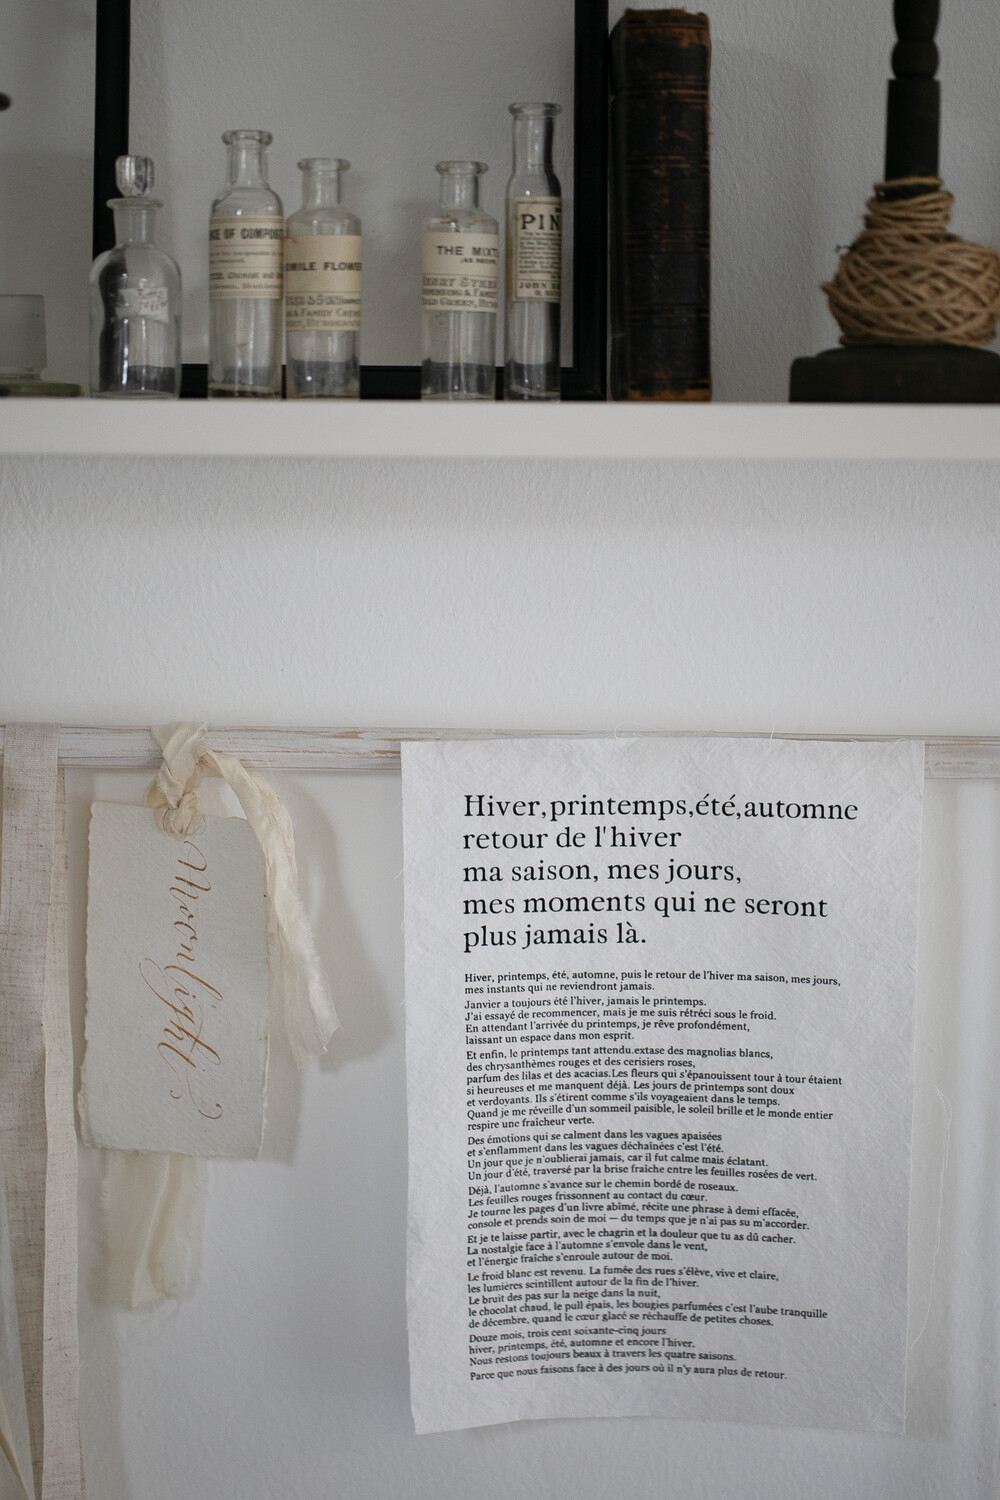 OF COMPOSIT
MILE FLOWE
& FAMILY
THE MIXT
(AS RECIPE
& FAMILY
PIN
JOHN
Moonlight
Hiver,printemps,été,automne
retour de l'hiver
ma saison, mes jours,
mes moments qui ne seront
plus jamais là.
Hiver, printemps, été, automne, puis le retour de l'hiver ma saison, mes jours,
mes instants qui ne reviendront jamais.
Janvier a toujours été l'hiver, jamais le printemps.
J'ai essayé de recommencer, mais je me suis rétréci sous le froid.
En attendant l'arrivée du printemps, je rêve profondément,
laissant un espace dans mon esprit.
Et enfin, le printemps tant attendu.extase des magnolias blancs,
des chrysanthèmes rouges et des cerisiers roses,
parfum des lilas et des acacias.Les fleurs qui s'épanouissent tour à tour étaient
si heureuses et me manquent déjà. Les jours de printemps sont doux
et verdoyants. Ils s'étirent comme s'ils voyageaient dans le temps.
Quand je me réveille d'un sommeil paisible, le soleil brille et le monde entier
respire une fraîcheur verte.
Des émotions qui se calment dans les vagues apaisées
et s'enflamment dans les vagues déchaînées c'est l'été.
Un jour que je n'oublierai jamais, car il fut calme mais éclatant.
Un jour d'été, traversé par la brise fraîche entre les feuilles rosées de vert.
Déjà, l'automne s'avance sur le chemin bordé de roseaux.
Les feuilles rouges frissonnent au contact du cœur.
Je tourne les pages d'un livre abîmé, récite une phrase à demi effacée,
console et prends soin de moi — du temps que je n'ai pas su m'accorder.
Et je te laisse partir, avec le chagrin et la douleur que tu as dû cacher.
La nostalgie face à l'automne s'envole dans le vent,
et l'énergie fraîche s'enroule autour de moi.
Le froid blanc est revenu. La fumée des rues s'élève, vive et claire,
les lumières scintillent autour de la fin de l'hiver.
Le bruit des pas sur la neige dans la nuit,
le chocolat chaud, le pull épais, les bougies parfumées c'est l'aube tranquille
de décembre, quand le cœur glacé se réchauffe de petites choses.
Douze mois, trois cent soixante-cinq jours
hiver, printemps, été, automne et encore l'hiver.
Nous restons toujours beaux à travers les quatre saisons.
Parce que nous faisons face à des jours où il n'y aura plus de retour.